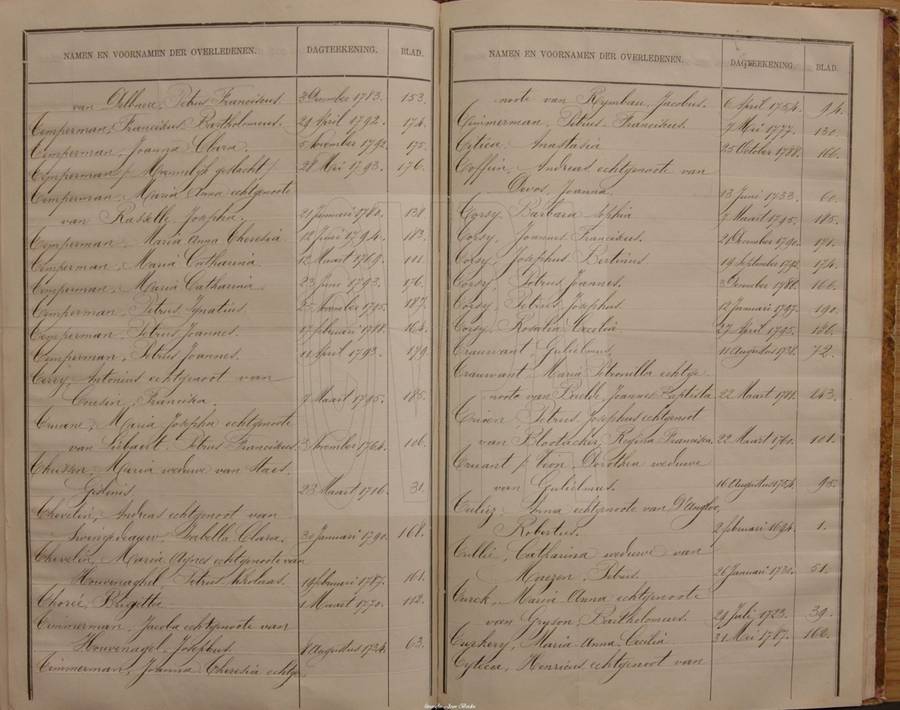 NAMEN EN VOORNAMEN DER OVERLEDENEN. DAGTEEKENING. BLAD.
van Petrus Franciscus. 3 December 1783. 153.
Cemperman, Franciscus Bartholomeus. 29 April 1792. 174.
Cemperman, Joanna Clara. 5 November 1792. 175.
Cemperman / Mannelijk geslacht / 28 Mei 1793. 176.
Cemperman, Maria Anna echtgenoote
van Rasselle, Josepha. 21 Januari 1782. 138.
Cemperman, Maria Anna Theresia 12 Juni 1794. 183.
Cemperman, Maria Catharina 12 Maart 1769. 111.
Cemperman, Maria Catharina 23 Juni 1793. 176.
Cemperman, Petrus Ignatius. November 1795. 187.
Cemperman, Petrus Joannes. 17 Februari 1788. 164.
Cemperman, Petrus Joannes. 11 April 1793. 179.
Antonius echtgenoot van
Franciska. 7 Maart 1795. 185.
Maria Josepha echtgenoote
van Petrus Franciscus. 3 November 1764. 106.
Maria weduwe van Staes
23 Maart 1716. 31.
Chevelin, Andreas echtgenoot van
Isabella Clara. 30 Januari 1790. 168.
Chevelin, Maria Agnes echtgenoote van
Houvenaghel, Petrus Nicolaas. 19 Februari 1787. 161.
Brigitte 1 Maart 1770. 112.
Cimmerman, Jacoba echtgenoote van
Houvenagel, Josephus. 8 Augustus 1734. 63.
Cimmerman, Joanna Theresia echtge-
NAMEN EN VOORNAMEN DER OVERLEDENEN. DAGTEEKENING. BLAD.
noote van Jacobus. 6 April 1754. 94.
Cimmerman, Petrus Franciscus. 7 Mei 1777. 130.
Anastasia 25 October 1788. 166.
Coffin, Andreas echtgenoote van
Devos, Joanna. 13 Juni 1733. 60.
Corsy, Barbara Sophia 7 Maart 1795. 185.
Corsy, Joannes Franciscus. 21 December 1790. 171.
Corsy, Josephus Bertinus 14 September 1792 174.
Corsy, Petrus Joannes. 3 December 1788. 166.
Corsy, Petrus Josephus 12 Januari 1797. 190.
Corsy, Rosalia Cecilia 27 April 1795. 186.
Crauwant, Gulielmus. 11 Augustus 1738. 72.
Crauwant, Maria Petronilla echtge-
noote van Joannes Baptista 22 Maart 1781. 143.
Petrus Josephus echtgenoot
van Regina Francisca. 22 Maart 1760. 101.
Dorothea weduwe
van Gulielmus. 16 Augustus 1754. 95.
Anna echtgenoote van
Robertus. 2 Februari 1694. 1.
Catharina weduwe van
Petrus. 26 Januari 1730. 51.
Maria Anna echtgenoote
van Gryson, Bartholomeus. 29 Juli 1722. 39.
Maria Anna Cecilia 31 Mei 1787. 162.
Henricus echtgenoot van